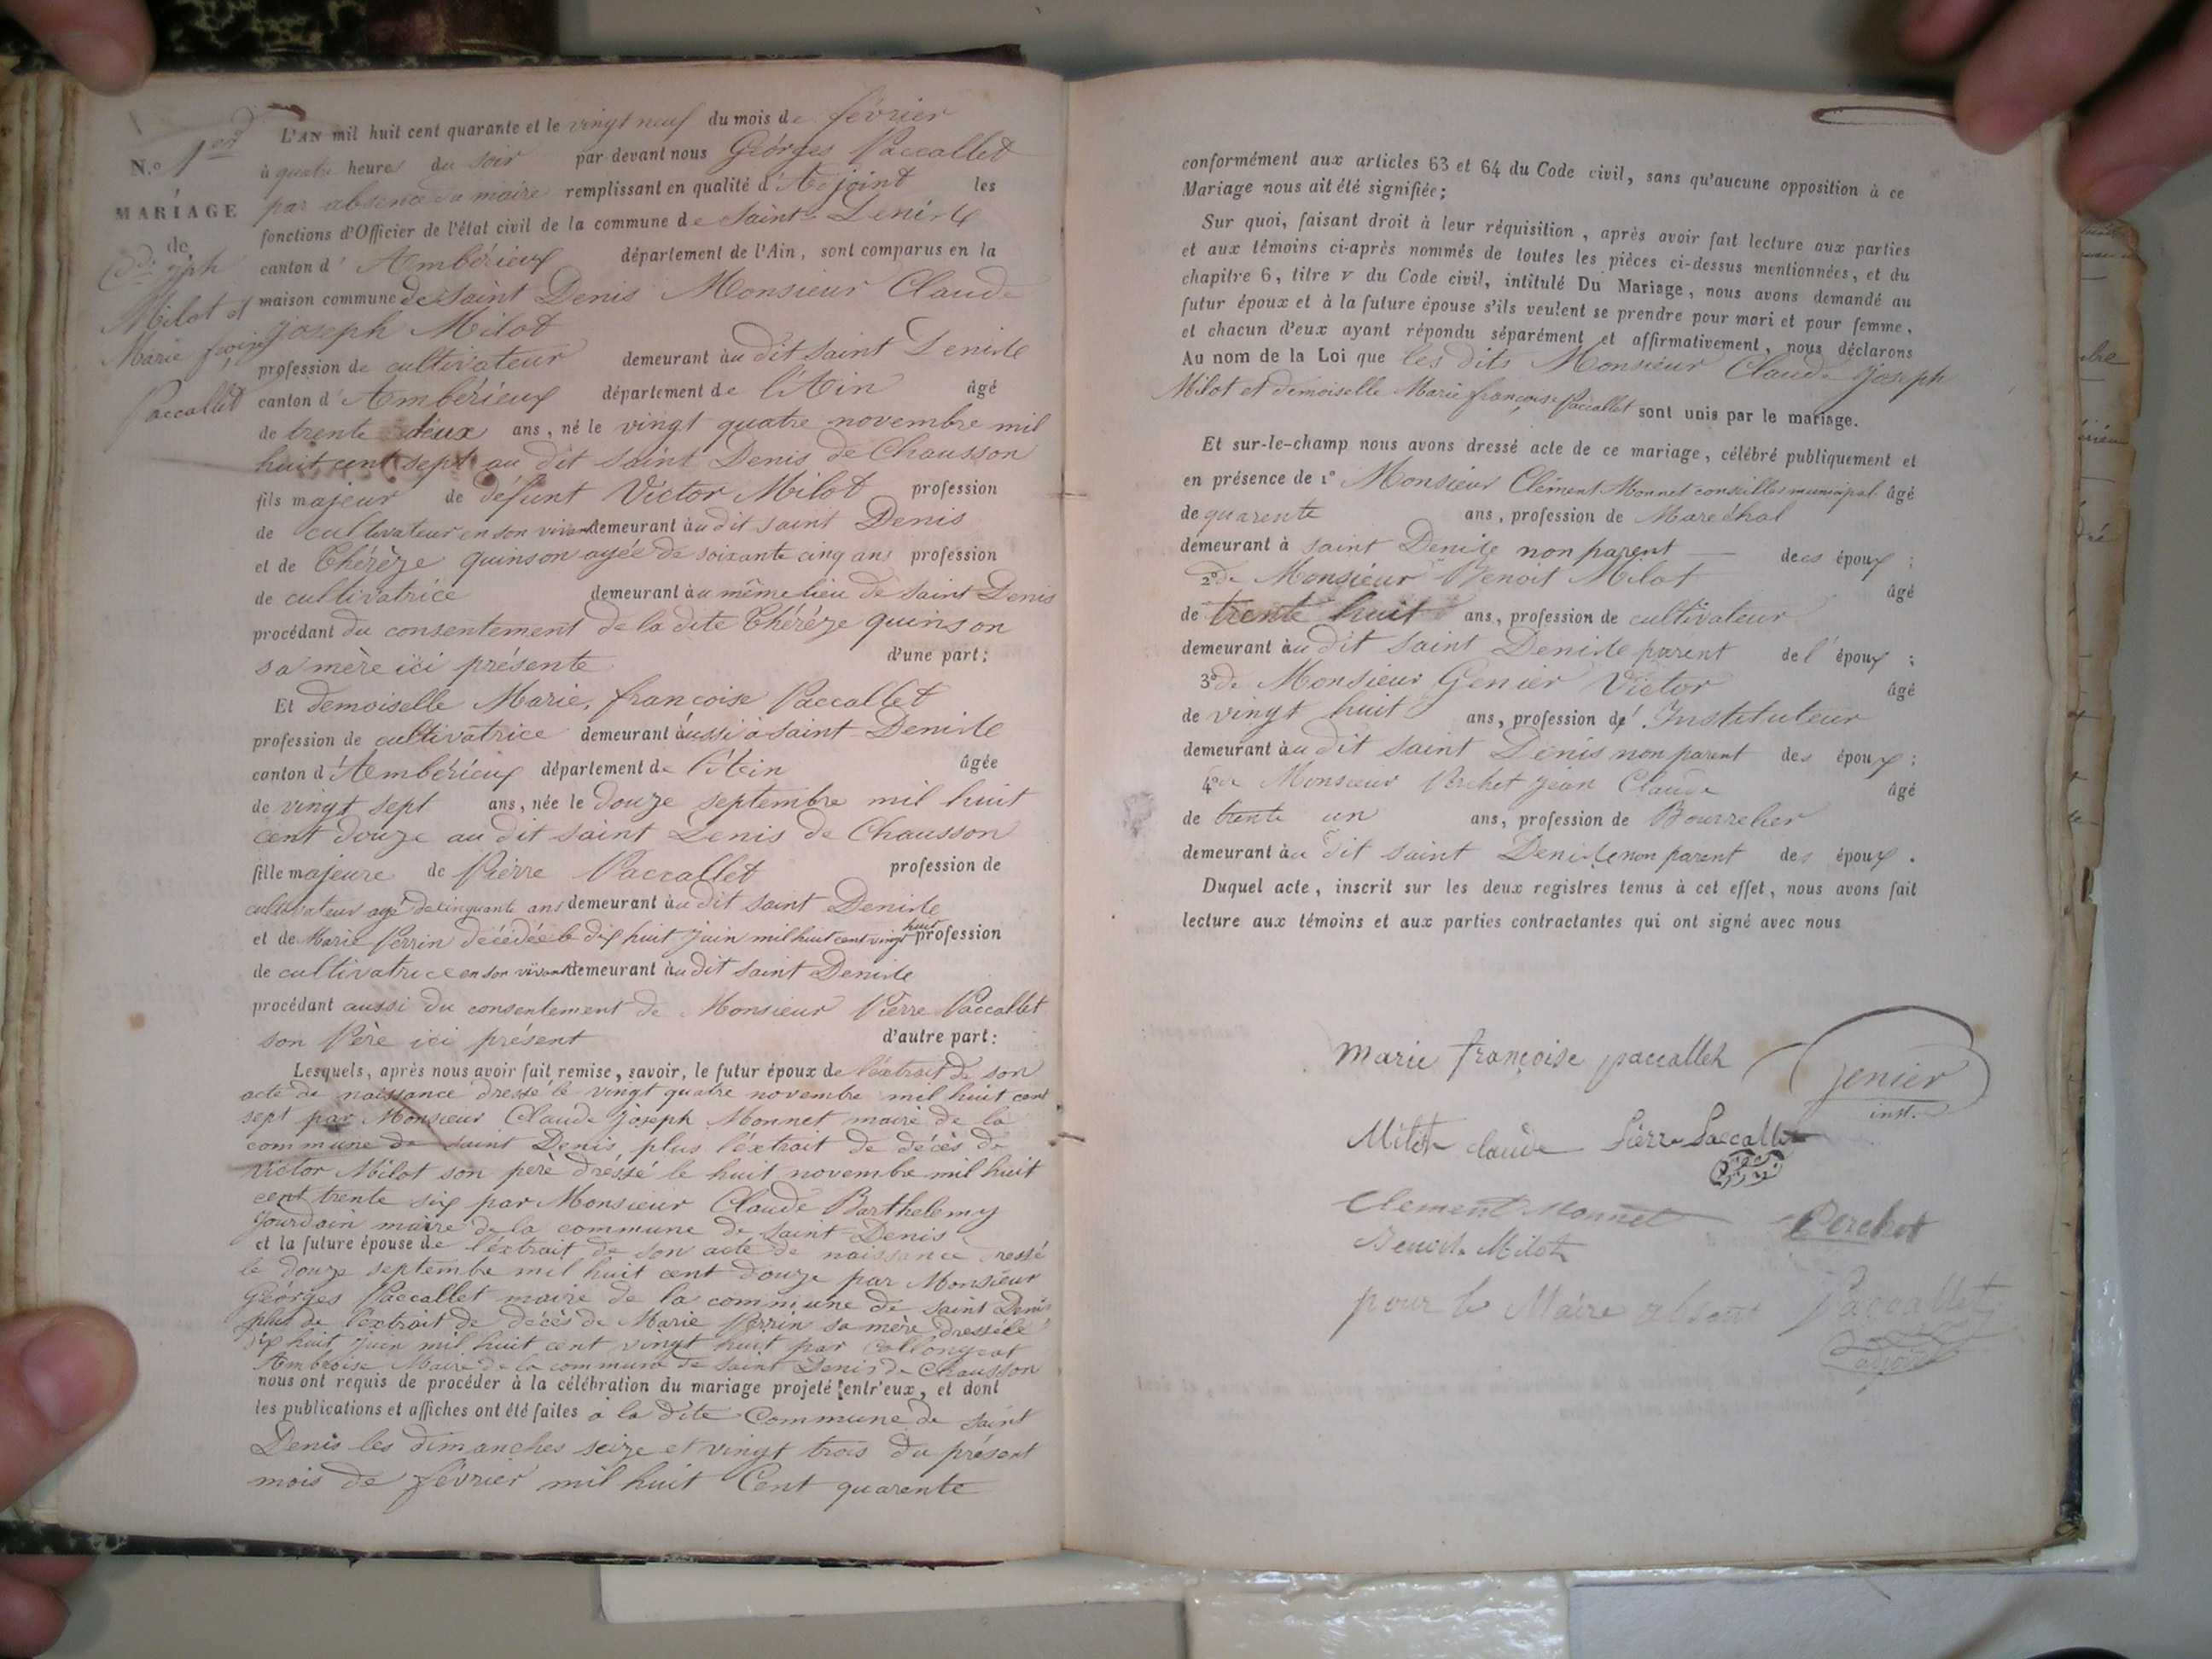 N.o 1er
MARIAGE
de
Cde jph
Milot et
Marie fçoise
Paccallet
L'AN mil huit cent quarante et le vingt neuf du mois de février
à quatre heures du soir par devant nous Géorges Paccallet
par absence du maire remplissant en qualité d'Adjoint les
fonctions d'Officier de l'état civil de la commune de Saint Denis le
canton d'Ambérieux département de l'Ain, sont comparus en la
maison commune de Saint Denis Monsieur Claude
joseph Milot
profession de cultivateur demeurant au dit Saint Denis le
canton d'Ambérieux département de l'Ain âgé
de trente deux ans, né le vingt quatre novembre mil
huit cent sept au dit Saint Denis de Chausson
fils majeur de défunt Victor Milot profession
de cultivateur en son vivant demeurant au dit Saint Denis
et de Thérèze quinson agée de soixante cinq ans profession
de cultivatrice demeurant au même lieu de Saint Denis
procédant du consentement de la dite Thérèze quinson
sa mère ici présente d'une part;
Et demoiselle Marie, françoise Paccallet
profession de cultivatrice demeurant aussi à Saint Denis le
canton d'Ambérieux département de l'Ain âgée
de vingt sept ans, née le douze septembre mil huit
cent douze au dit Saint Denis de Chausson
fille majeure de Pierre Paccallet profession de
cultivateur agé de cinquante ans demeurant au dit Saint Denis le
et de Marie Perrin décédée le dix huit juin mil huit cent vingt huit profession
de cultivatrice en son vivant demeurant au dit Saint Denis le
procédant aussi du consentement de Monsieur Pierre Paccallet
son Père ici présent d'autre part:
Lesquels, après nous avoir fait remise, savoir, le futur époux de l'éxtrait de son
acte de naissance dressé le vingt quatre novembre mil huit cent
sept par Monsieur Claude joseph Monnet maire de la
commune de Saint Denis plus l'éxtrait de décès de
Victor Milot son père dréssé le huit novembre mil huit
cent trente six par Monsieur Claude Barthelemy
Jourdain maire de la commune de Saint Denis
et la future épouse de l'éxtrait de son acte de naissance dressé
le douze septembre mil huit cent douze par Monsieur
Géorges Paccallet maire de la commune de Saint Denis
plus de l'extrait de décès de Marie Perrin sa mère dressé le
dix huit juin mil huit cent vingt huit par Collongeat
Ambroise Maire de la commune de Saint Denis de Chausson
nous ont requis de procéder à la célébration du mariage projeté entr'eux, et dont
les publications et affiches ont été faites à la dite Commune de Saint
Denis les dimanches seize et vingt trois du présent
mois de février mil huit Cent quarente
conformément aux articles 63 et 64 du Code civil, sans qu'aucune opposition à ce
Mariage nous ait été signifiée;
Sur quoi, faisant droit à leur réquisition, après avoir fait lecture aux parties
et aux témoins ci-après nommés de toutes les pièces ci-dessus mentionnées, et du
chapitre 6, titre V du Code civil, intitulé Du Mariage, nous avons demandé au
futur époux et à la future épouse s'ils veulent se prendre pour mari et pour femme,
et chacun d'eux ayant répondu séparément et affirmativement, nous déclarons
Au nom de la Loi que les dits Monsieur Claude joseph
Milot et demoiselle Marie françoise Paccallet sont unis par le mariage.
Et sur-le-champ nous avons dressé acte de ce mariage, célébré publiquement et
en présence de 1° Monsieur Clément Monnet conseiller municipal âgé
de quarente ans, profession de Maréchal
demeurant à Saint Denis le non parent des époux;
2° de Monsieur Benoit Milot âgé
de trente huit ans, profession de cultivateur
demeurant au dit Saint Denis le parent de l'époux;
3° de Monsieur Genier Victor âgé
de vingt huit ans, profession d'Instituteur
demeurant au dit Saint Denis non parent des époux;
4° de Monsieur Perchet Jean Claude âgé
de trente un ans, profession de Bourrelier
demeurant au dit Saint Denis le non parent des époux.
Duquel acte, inscrit sur les deux registres tenus à cet effet, nous avons fait
lecture aux témoins et aux parties contractantes qui ont signé avec nous
marie françoise paccallet Genier
inst.
Milot claude Pierre Paccallet
Clement Monnet Perchet
Benoit Milot
pour le Maire absent Paccallet
adjoint